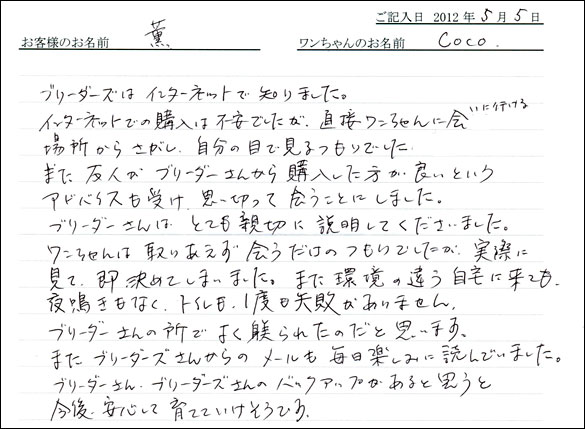 ご記入日 2012 年 5 月 5 日
お客様のお名前 薫 ワンちゃんのお名前 Coco.
ブリーダーズは インターネットで 知りました。
インターネットでの購入は不安でしたが、直接ワンちゃんに会いに行ける
場所からさがし、自分の目で見るつもりでした。
また 友人が ブリーダーさんから 購入した方が 良いという
アドバイスも受け、思い切って 会うことに しました。
ブリーダーさんは とても 親切に 説明してくださいました。
ワンちゃんは 取りあえず 会うだけの つもりでしたが、実際に
見て、即 決めてしまいました。また 環境の 違う 自宅に 来ても、
夜鳴きもなく、トイレも、1度も 失敗が ありません。
ブリーダーさんの所で よく 躾られたのだと 思います。
また ブリーダーズさんからの メールも 毎日楽しみに 読んでいました。
ブリーダーさん、ブリーダーズさんの バックアップがあると思うと
今後、安心して 育てていけそうです。